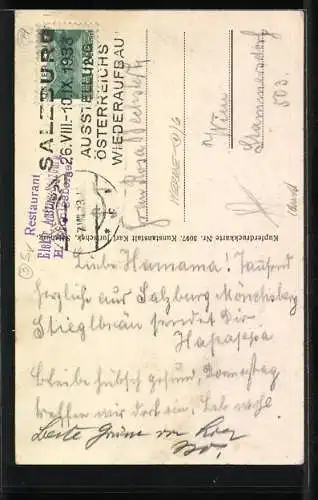 SALZBURG
26.VIII.-10.IX.1933
AUSSTELLUNG
ÖSTERREICHS
WIEDERAUFBAU
Restaurant
Kupferdruckkarte Nr. 5097. Kunstanstalt Karl
Frau Rosa
Wien
503.
Liebe Hamama! Tausend
herzliche aus Salzburg Mönchsberg
Stieglbräu sendet Dir
Hapappa
Bleibe hübsch gesund, Donnerstag
treffen wir dort ein, Leb wohl
beste Grüsse von